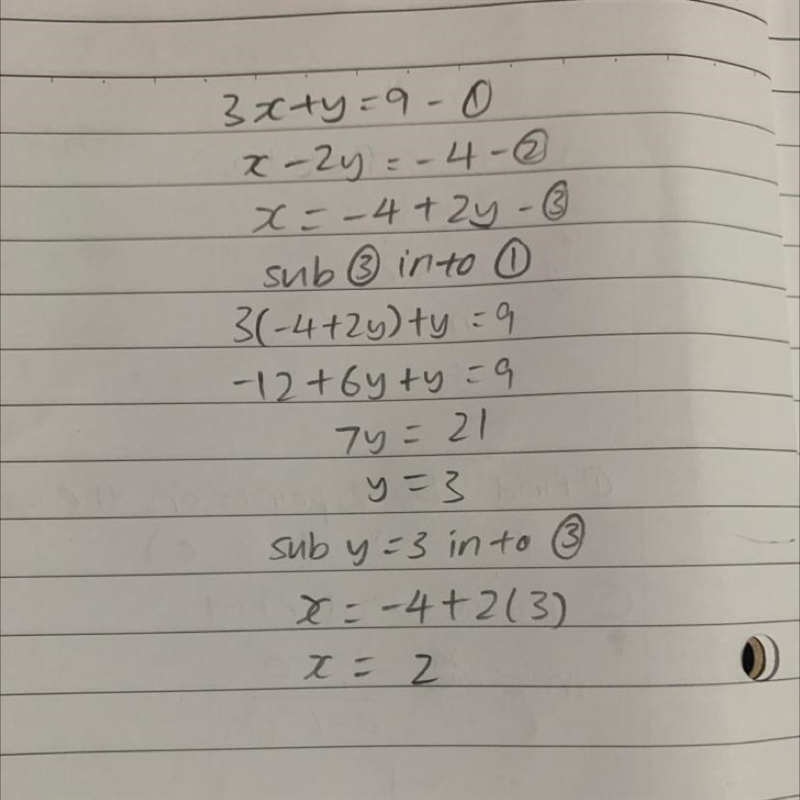 3x+y=9 - ①
x-2y=-4-②
x=-4+2y-③
sub ③ into ①
3(-4+2y)+y=9
-12+6y+y=9
7y=21
y=3
sub y=3 into ③
x=-4+2(3)
x=2